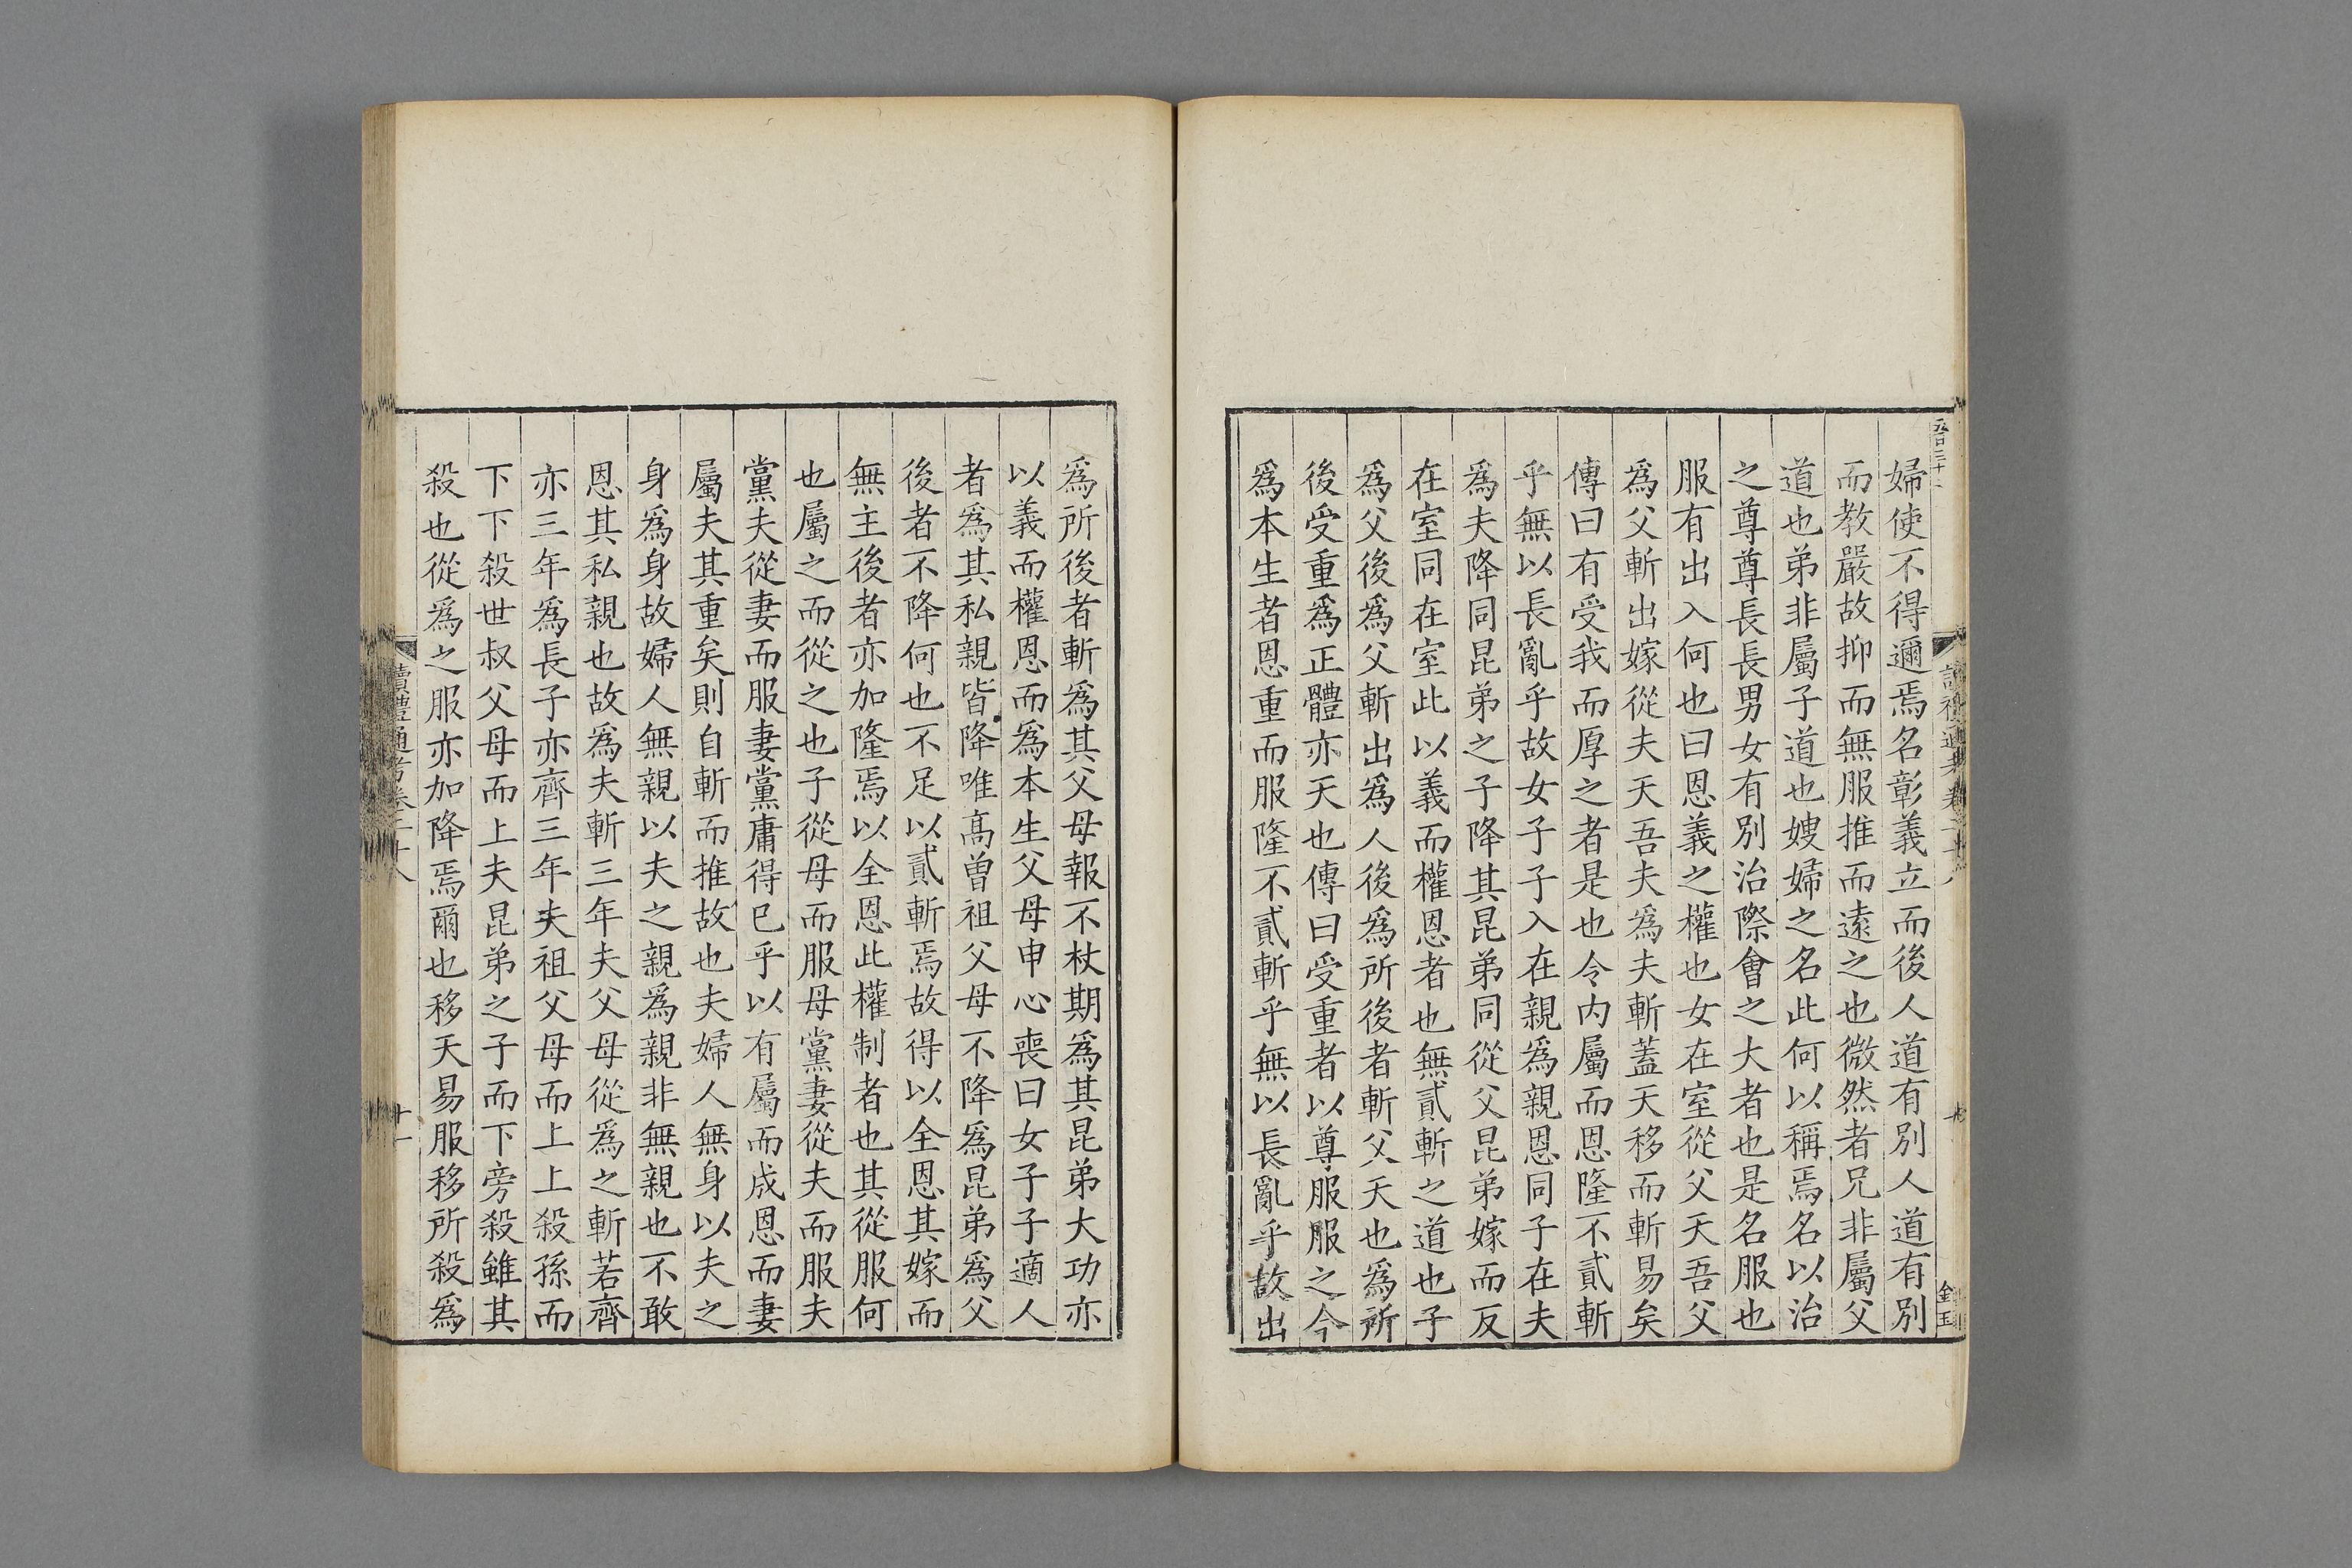 婦使不得邇焉名彰義立而後人道有別人道有別
而教嚴故抑而無服推而遠之也微然者兄非屬父
道也弟非屬子道也嫂婦之名此何以稱焉名以治
之尊尊長長男女有別治際會之大者也是名服也
服有出入何也曰恩義之權也女在室從父天吾父
爲父斬出嫁從夫天吾夫爲夫斬蓋天移而斬易矣
傳曰有受我而厚之者是也令內屬而恩隆不貳斬
乎無以長亂乎故女子子入在親爲親恩同子在夫
爲夫降同昆弟之子降其昆弟同從父昆弟嫁而反
在室同在室此以義而權恩者也無貳斬之道也子
爲父後爲父斬出爲人後爲所後者斬父天也爲所
後受重爲正體亦天也傳曰受重者以尊服服之今
爲本生者恩重而服隆不貳斬乎無以長亂乎故出
金玉
爲所後者斬爲其父母報不杖期爲其昆弟大功亦
以義而權恩而爲本生父母申心喪曰女子子適人
者爲其私親皆降唯高曾祖父母不降爲昆弟爲父
後者不降何也不足以貳斬焉故得以全恩其嫁而
無主後者亦加隆焉以全恩此權制者也其從服何
也屬之而從之也子從母而服母黨妻從夫而服夫
黨夫從妻而服妻黨庸得已乎以有屬而成恩而妻
屬夫其重矣則自斬而推故也夫婦人無身以夫之
身爲身故婦人無親以夫之親爲親非無親也不敢
恩其私親也故爲夫斬三年夫父母從爲之斬若齊
亦三年爲長子亦齊三年夫祖父母而上上殺孫而
下下殺世叔父母而上夫昆弟之子而下旁殺雖其
殺也從爲之服亦加降焉爾也移天易服移所殺爲
讀禮通考卷二十八
十一